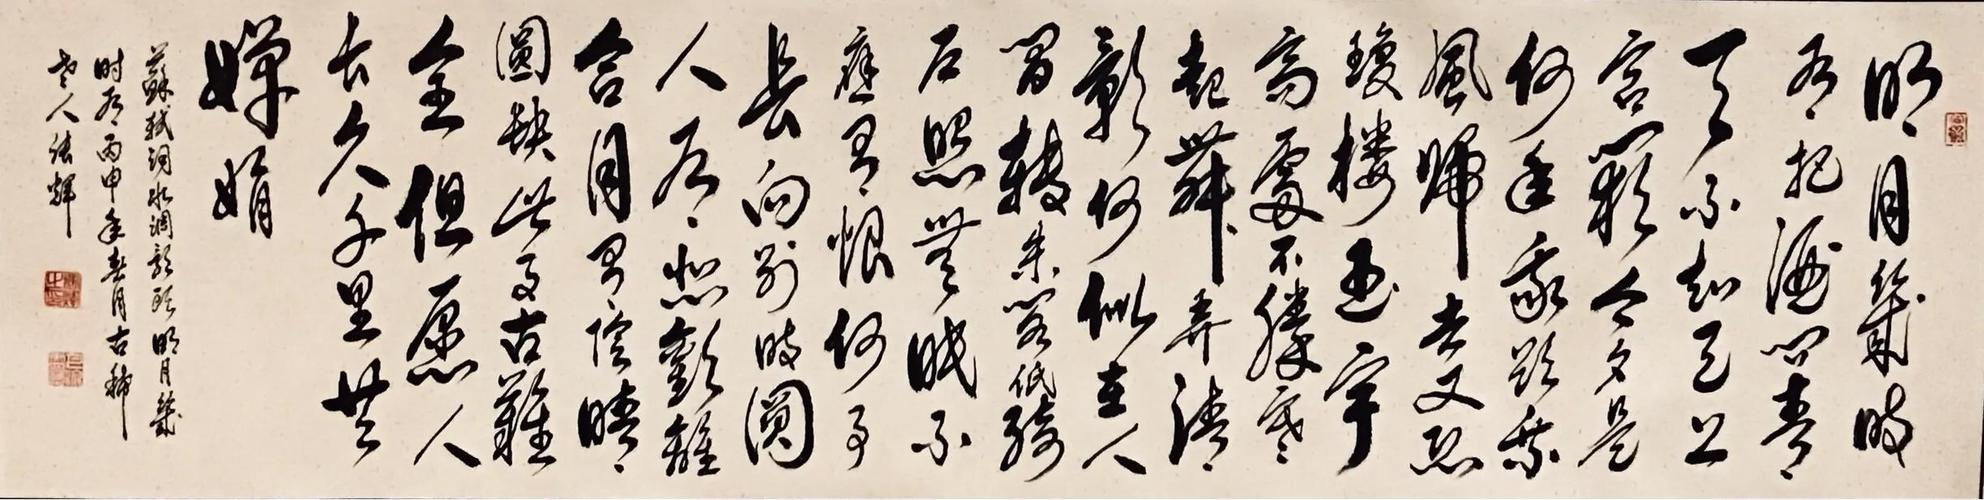 明月幾時
有把酒問青
天不知天上
宮闕今夕是
何年我欲乘
風歸去又恐
瓊楼玉宇
高處不勝寒
起舞弄清
影何似在人
間轉朱閣低綺
户照無眠不
應有恨何事
長向别時圓
人有悲歡離
合月有陰晴
圓缺此事古難
全但愿人
長久千里共
嬋娟
蘇軾詞水調歌頭明月幾
时有丙申年春月古稀
老人輝